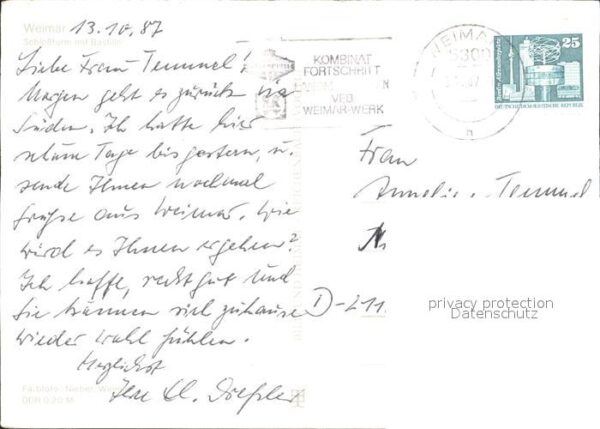 Weimar
13.10.87
Schloßturm mit Bastille
Liebe Frau Temmel!
Morgen geht es zurück in
Süden. Ich hatte hier
schöne Tage bis gestern, u.
sende Ihnen nochmal
Grüße aus Weimar. Wie
wird es Ihnen ergehen?
Ich hoffe, recht gut und
Sie können sich zuhause
wieder wohl fühlen.
Herzlichst
Ihre
Farbfoto: Nieber
DER 0,20 M
KOMBINAT
FORTSCHRITT
VEB
WEIMAR-WERK
WEIMAR
5300
h
25
DEUTSCHE DEMOKRATISCHE REPUBLIK
Frau
Annelie Temmel
D-211
privacy protection
Datenschutz